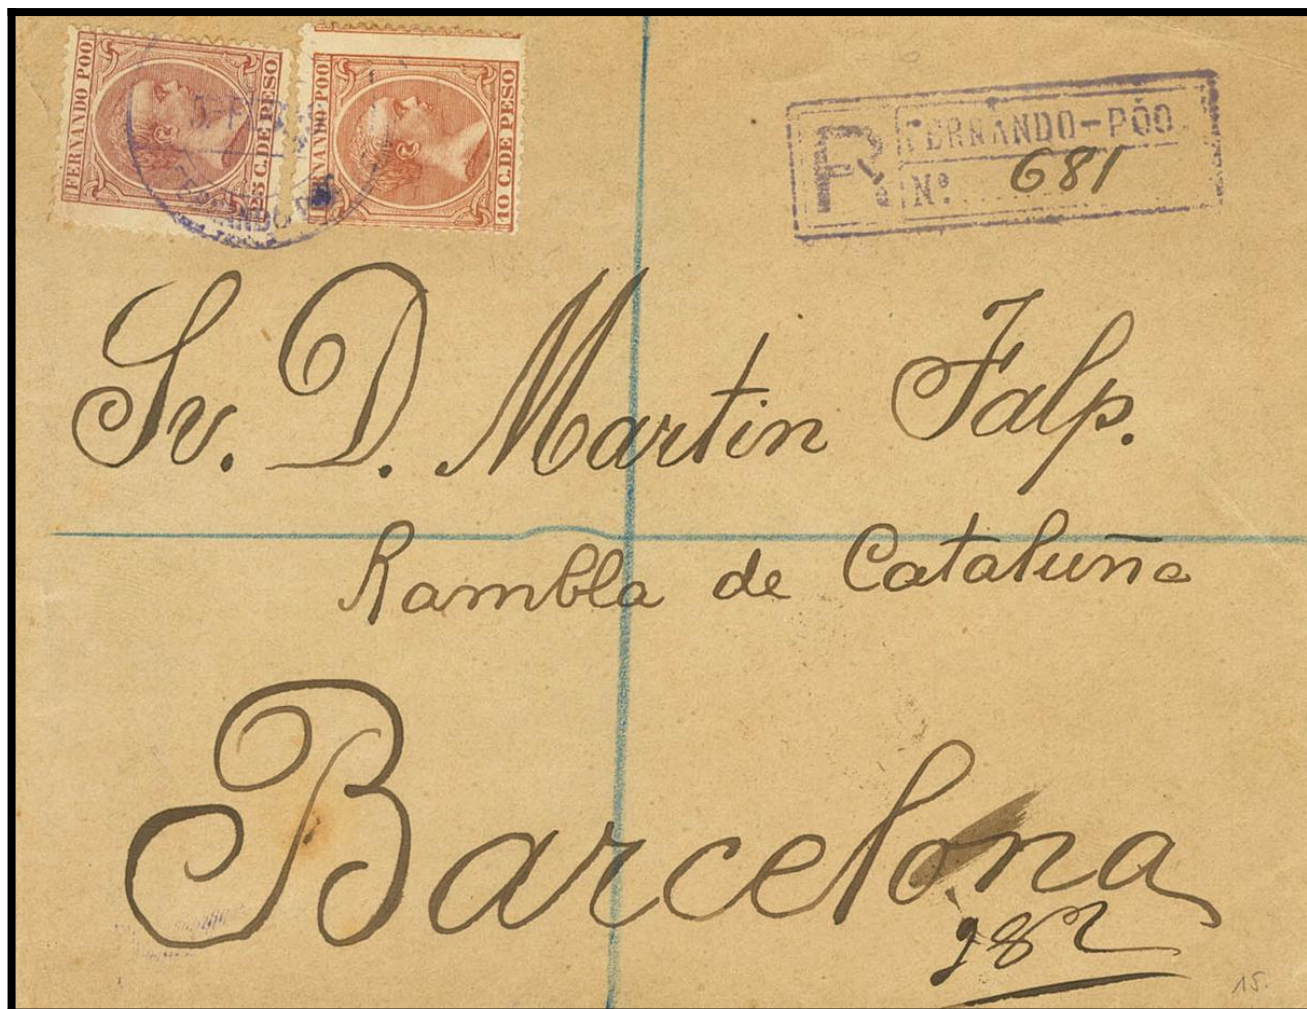 FERNANDO POO
25 C. DE PESO
FERNANDO POO
10 C. DE PESO
R FERNANDO-PÓO
Nº 681
Sr. D. Martin Falp.
Rambla de Cataluña
Barcelona
982
15.